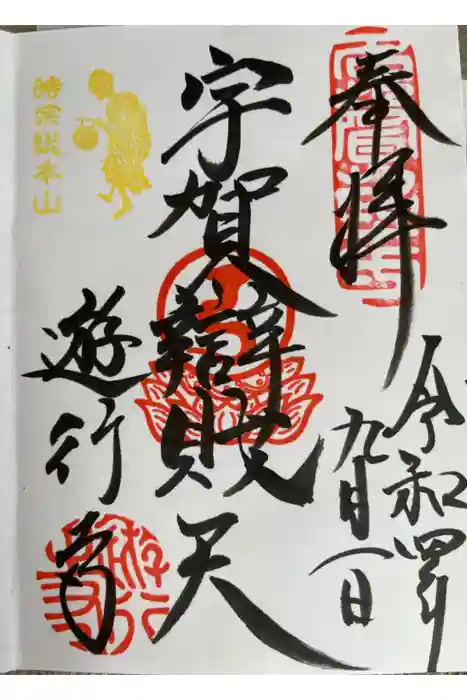 奉拝
令和四年
九月一日
宇賀辯財天
時宗総本山
遊行寺